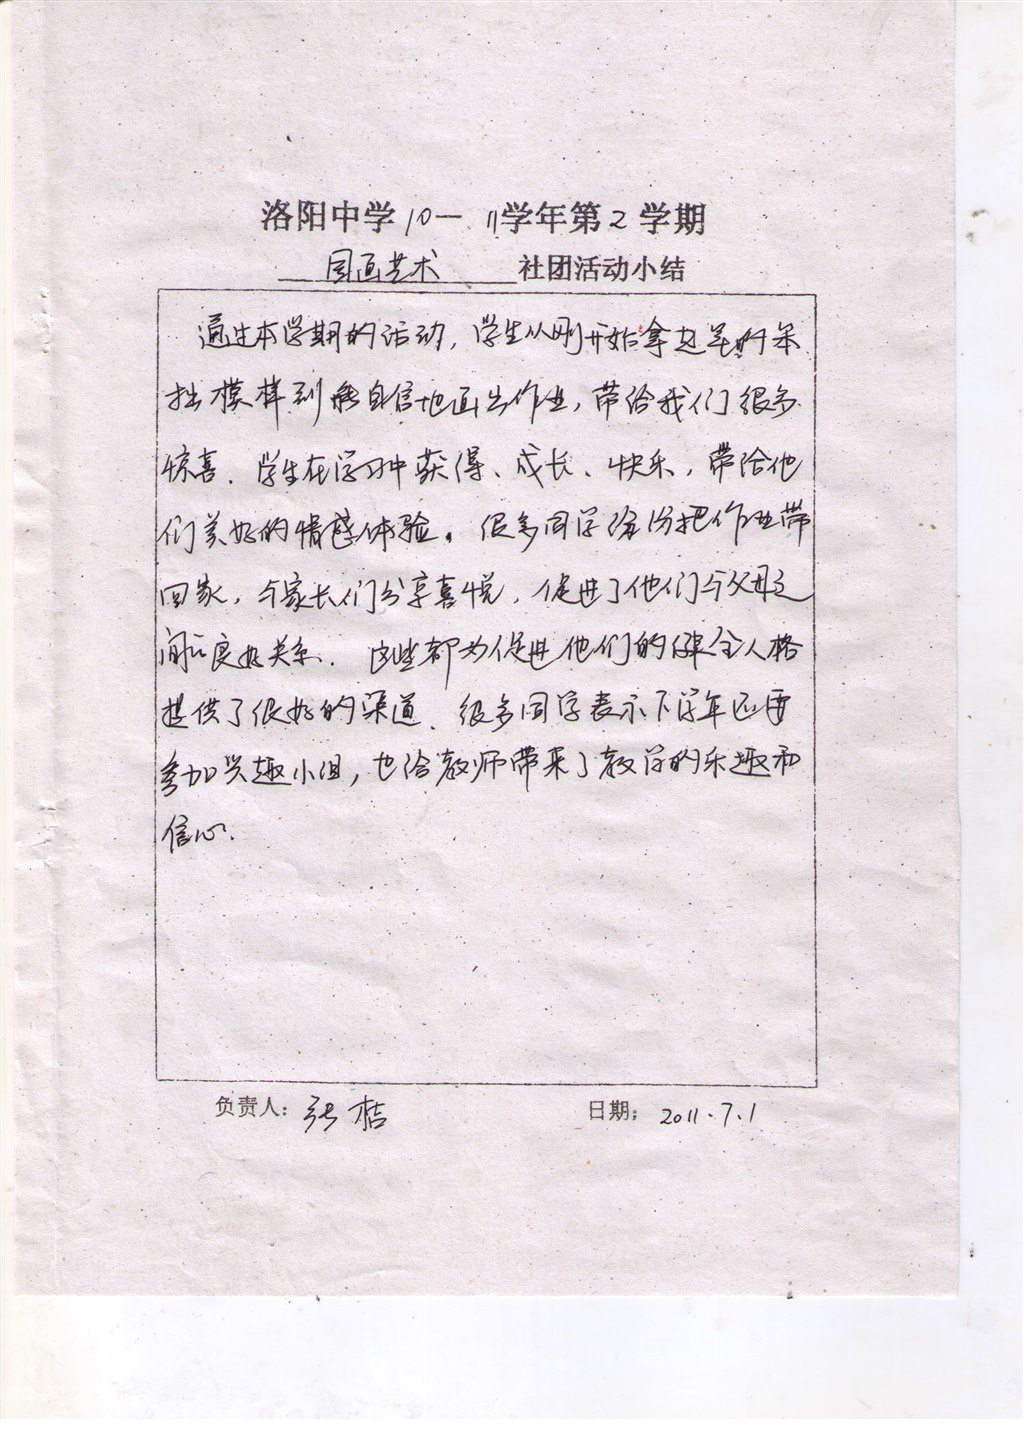 洛阳中学10—11学年第2学期
国画艺术 社团活动小结
通过本学期的活动，学生从刚开始拿起笔的笨
拙模样到能自信地画出作业，带给我们很多
惊喜．学生在学习中获得、成长、快乐，带给他
们美好的情感体验。很多同学纷纷把作业带
回家，与家长们分享喜悦，促进了他们与父母之
间的良好关系．这些都为促进他们的健全人格
提供了很好的渠道．很多同学表示下学年还要
参加兴趣小组，也给教师带来了教学的乐趣和
信心．
负责人：张桔
日期：2011.7.1